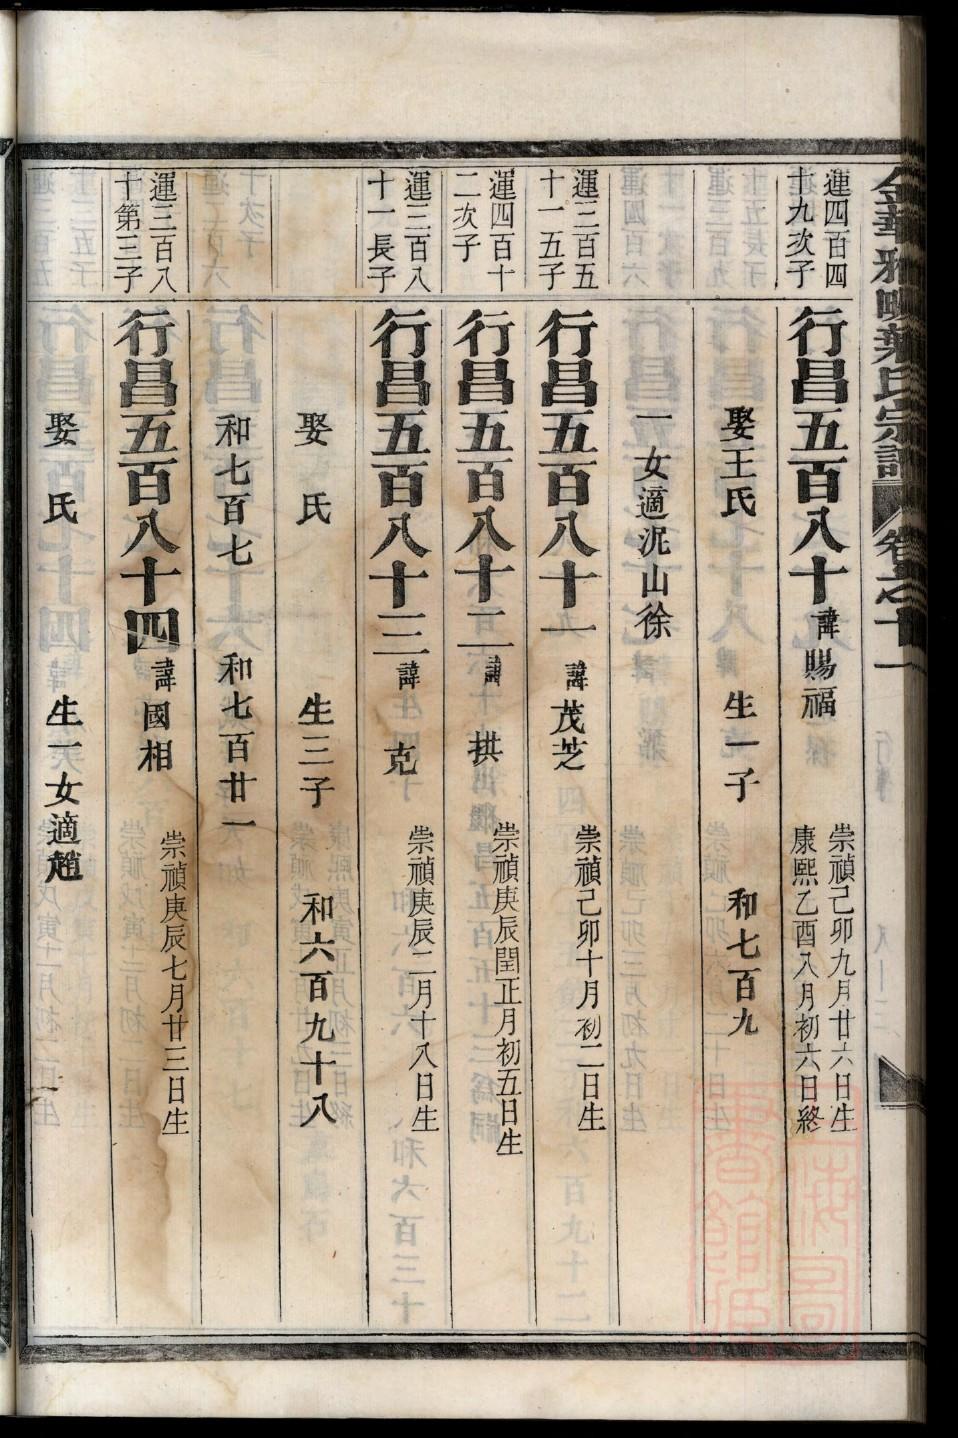 運四百四
十九次子
行昌五百八十諱賜福
崇禎己卯九月廿六日生
康熙乙酉八月初六日終
娶王氏 生一子 和七百九
一女適泥山徐
運三百五
十一五子
行昌五百八十一諱茂芝
崇禎己卯十月初二日生
運四百十
二次子
行昌五百八十二諱拱
崇禎庚辰閏正月初五日生
運三百八
十一長子
行昌五百八十三諱克
崇禎庚辰二月十八日生
娶 氏 生三子 和六百九十八
和七百七 和七百廿一
運三百八
十第三子
行昌五百八十四諱國相
崇禎庚辰七月廿三日生
娶 氏 生一女適趙